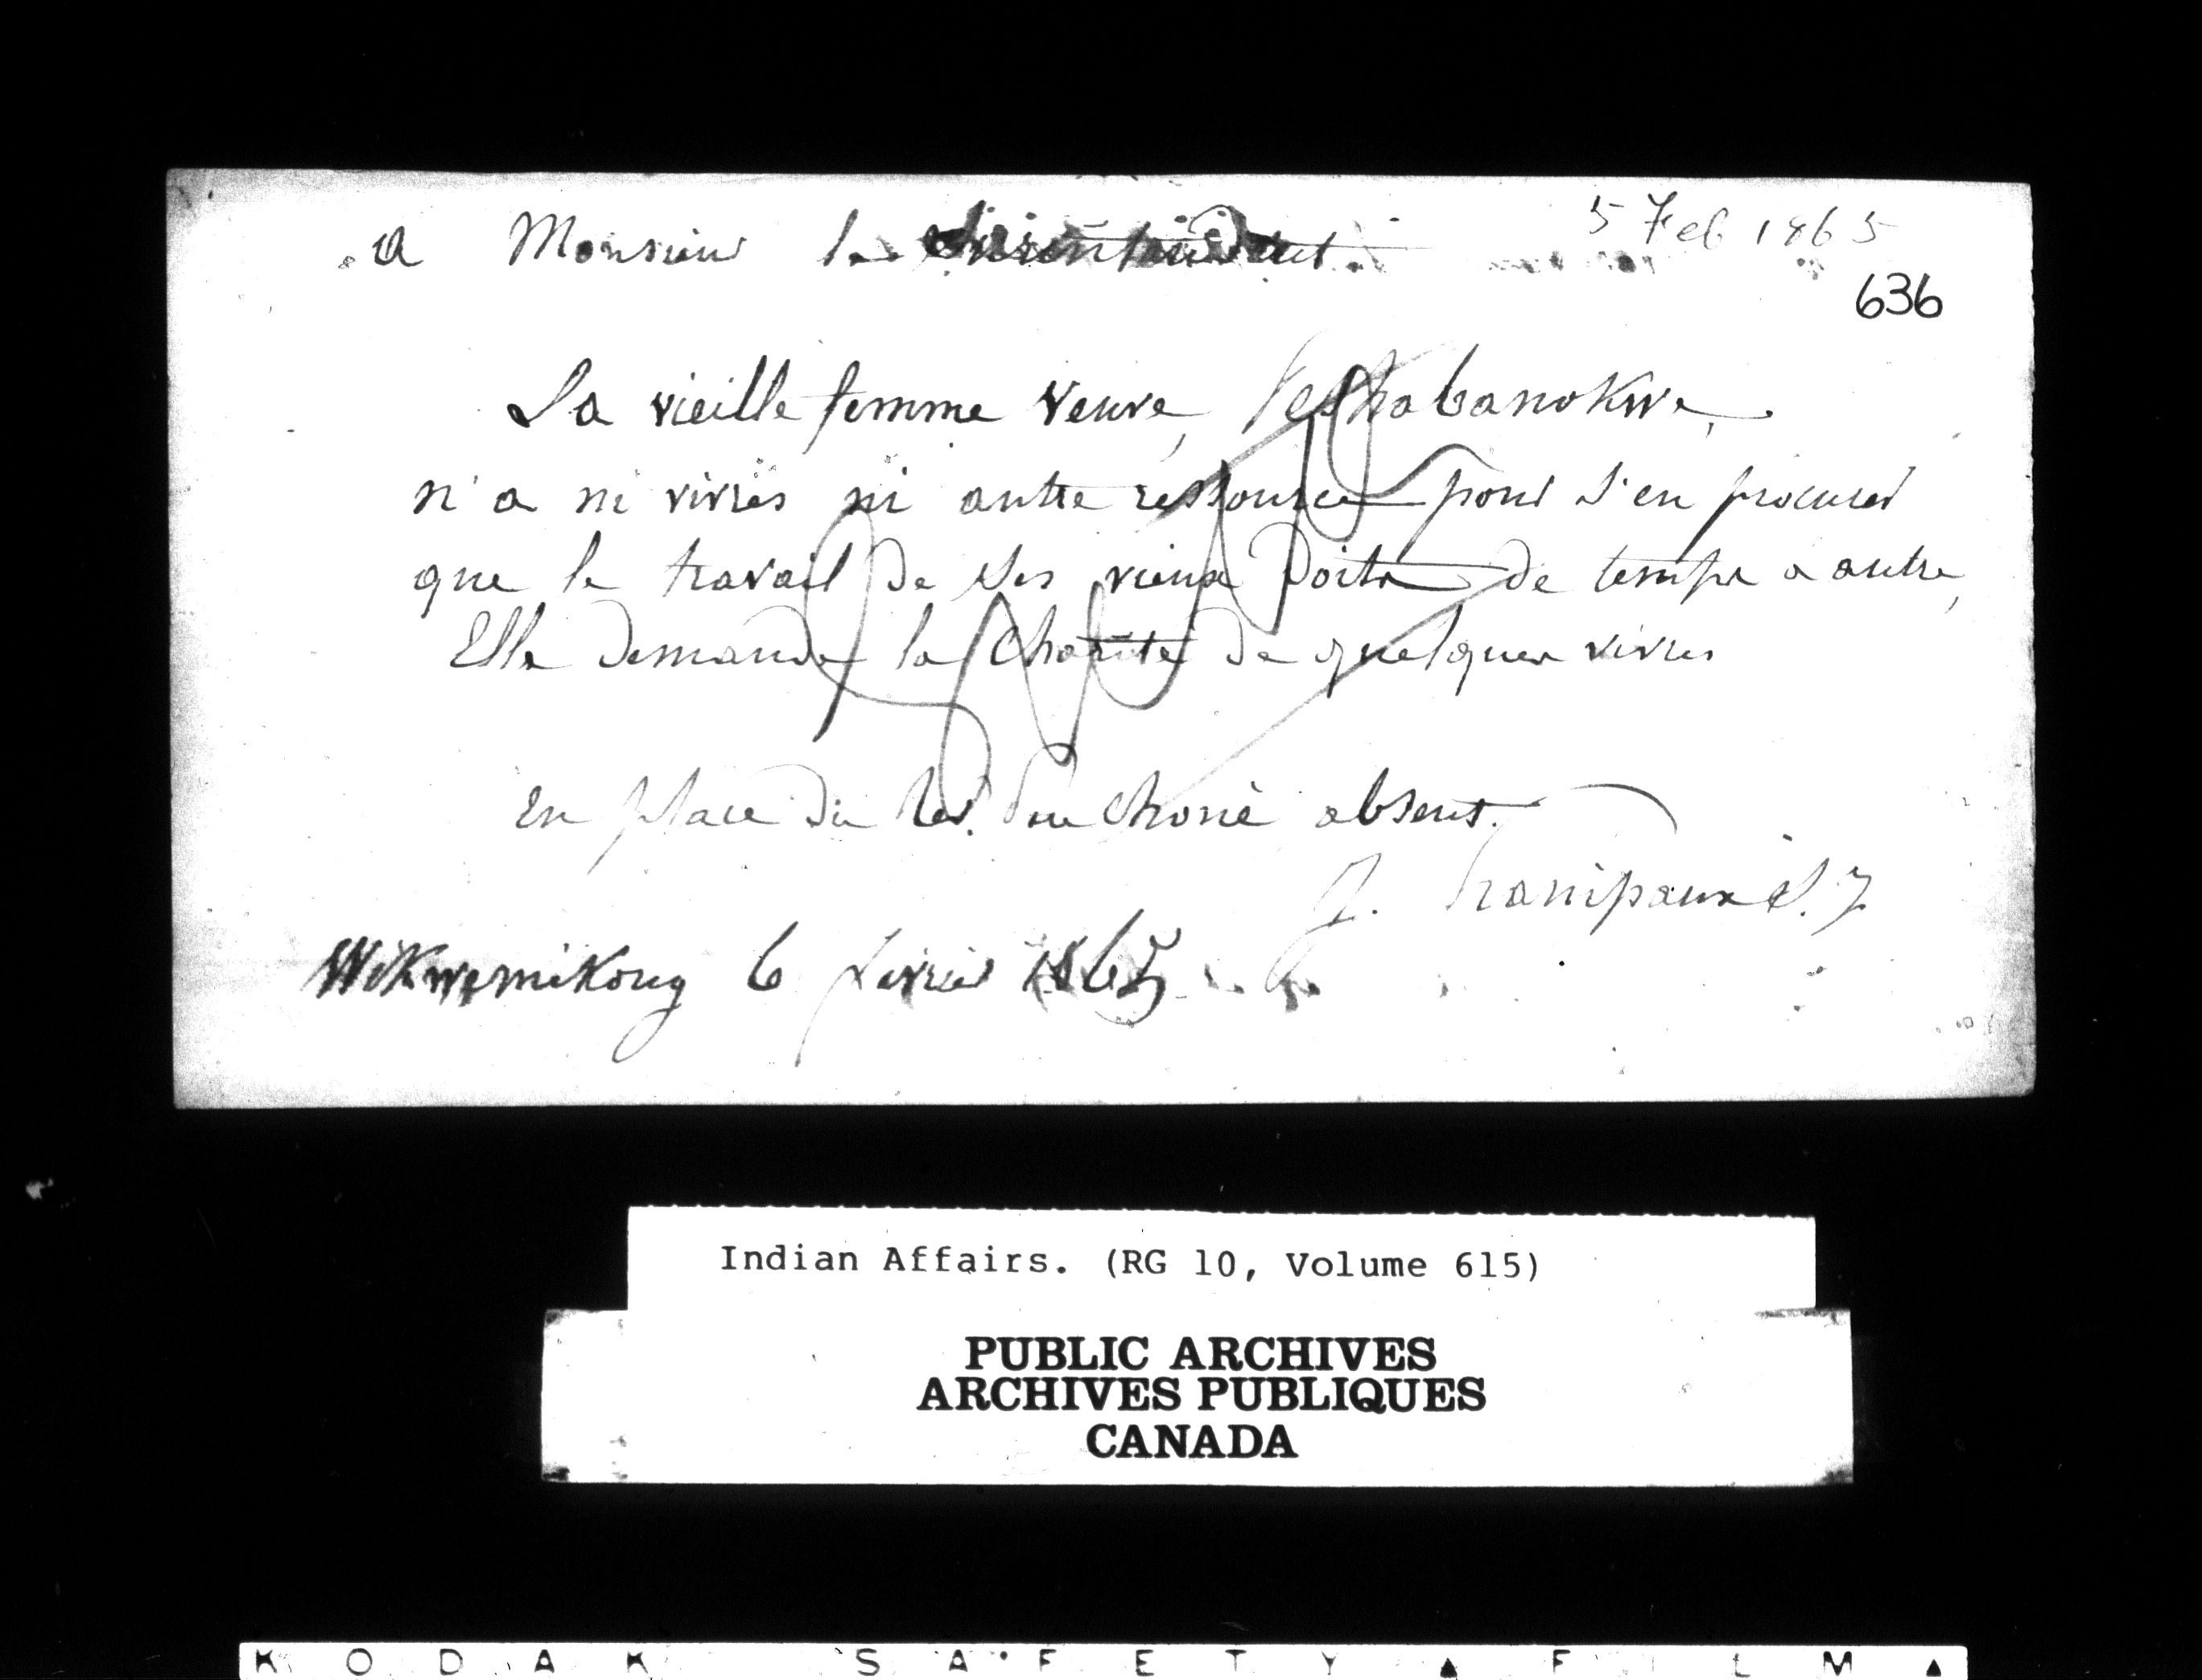 5 Feb 1865
a Monsieur le surintendant
636
La vieille femme veuve, Peshabanokwe,
n'a ni vivres ni autre ressource pour s'en procurer
que le travail de ses vieux doits de temps a autre,
Elle demande la charité de quelques vivres
En place du Rev. Père Choné absent.
J. Hanipaux S.J.
Wikwemikong 6 fevrier 1865
Indian Affairs. (RG 10, Volume 615)
PUBLIC ARCHIVES
ARCHIVES PUBLIQUES
CANADA
KODAK SAFETY ▲ FILM ▲